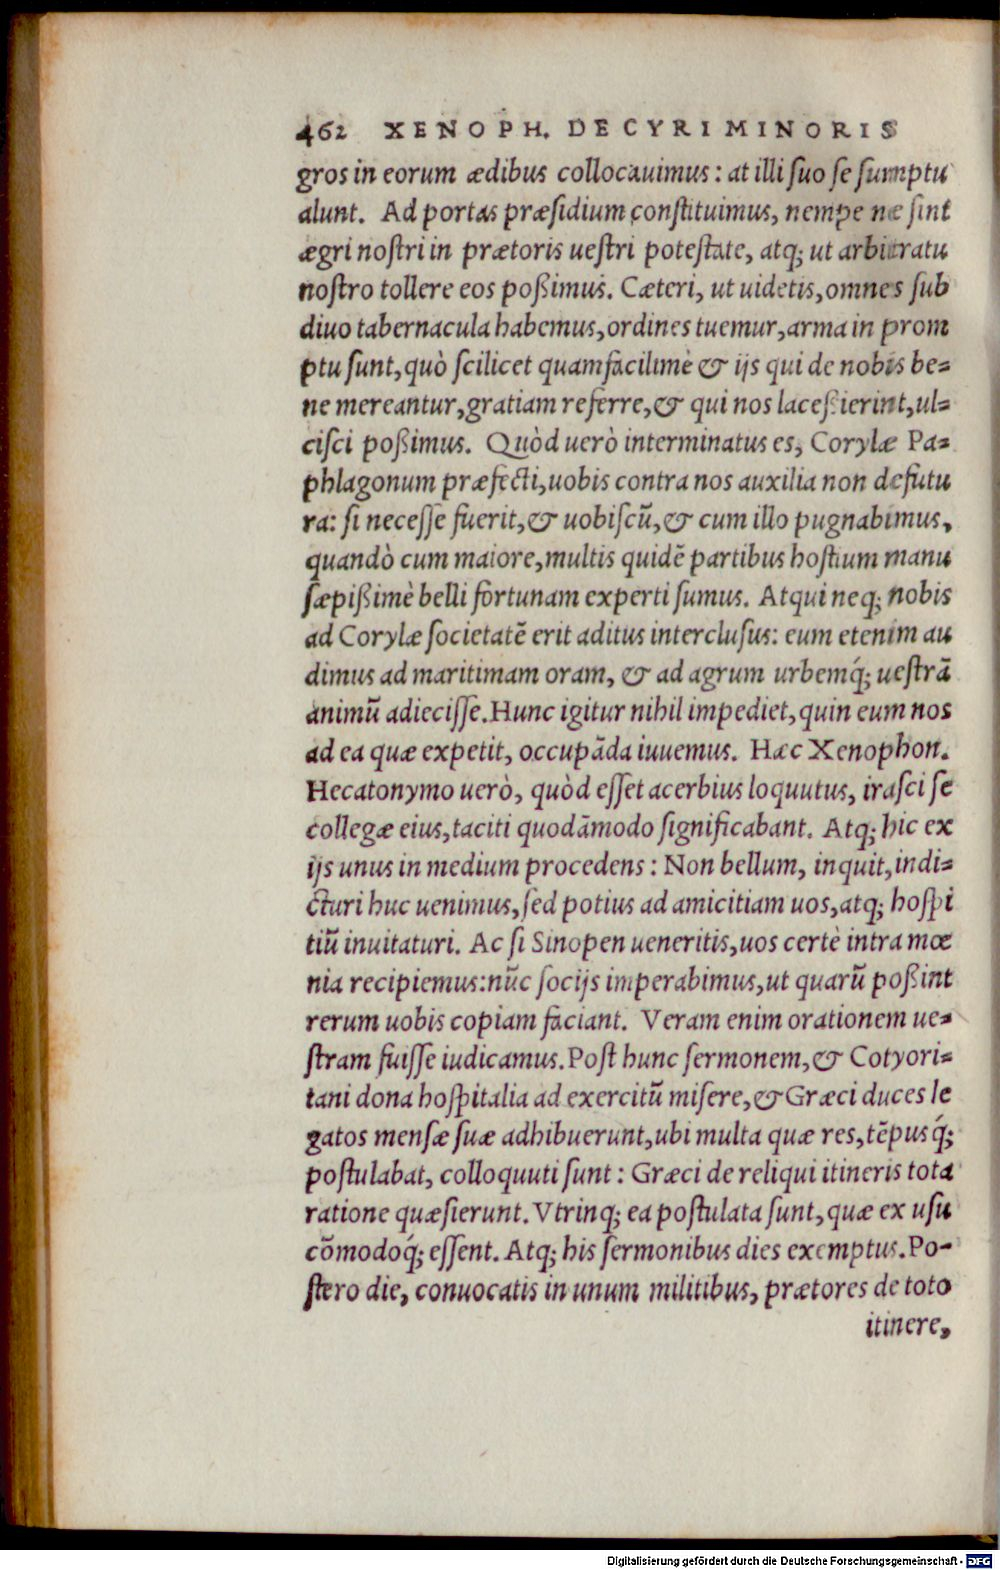 462 XENOPH. DE CYRI MINORIS
gros in eorum ædibus collocauimus: at illi suo se sumptu
alunt. Ad portas præsidium constituimus, nempe ne sint
ægri nostri in prætoris uestri potestate, atq; ut arbitratu
nostro tollere eos poßimus. Cæteri, ut uidetis, omnes sub
diuo tabernacula habemus, ordines tuemur, arma in prom
ptu sunt, quò scilicet quamfacilimè & ijs qui de nobis be=
ne mereantur, gratiam referre, & qui nos laceßierint, ul=
cisci poßimus. Quòd uerò interminatus es, Corylæ Pa=
phlagonum præfecti, uobis contra nos auxilia non defutu
ra: si necesse fuerit, & uobiscū, & cum illo pugnabimus,
quandò cum maiore, multis quidē partibus hostium manu
sæpißimè belli fortunam experti sumus. Atqui neq; nobis
ad Corylæ societatē erit aditus interclusus: eum etenim au
dimus ad maritimam oram, & ad agrum urbemq́; uestrā
animū adiecisse. Hunc igitur nihil impediet, quin eum nos
ad ea quæ expetit, occupāda iuuemus. Hæc Xenophon.
Hecatonymo uerò, quòd esset acerbius loquutus, irasci se
collegæ eius, taciti quodāmodo significabant. Atq; hic ex
ijs unus in medium procedens: Non bellum, inquit, indi=
cturi huc uenimus, sed potius ad amicitiam uos, atq; hospi
tiū inuitaturi. Ac si Sinopen ueneritis, uos certè intra mœ
nia recipiemus: nūc socijs imperabimus, ut quarū poßint
rerum uobis copiam faciant. Veram enim orationem ue=
stram fuisse iudicamus. Post hunc sermonem, & Cotyori=
tani dona hospitalia ad exercitū misere, & Græci duces le
gatos mensæ suæ adhibuerunt, ubi multa quæ res, tēpusq́;
postulabat, colloquuti sunt: Græci de reliqui itineris tota
ratione quæsierunt. Vtrinq; ea postulata sunt, quæ ex usu
cōmodoq́; essent. Atq; his sermonibus dies exemptus. Po-
stero die, conuocatis in unum militibus, prætores de toto
itinere,
Digitalisierung gefördert durch die Deutsche Forschungsgemeinschaft - DFG